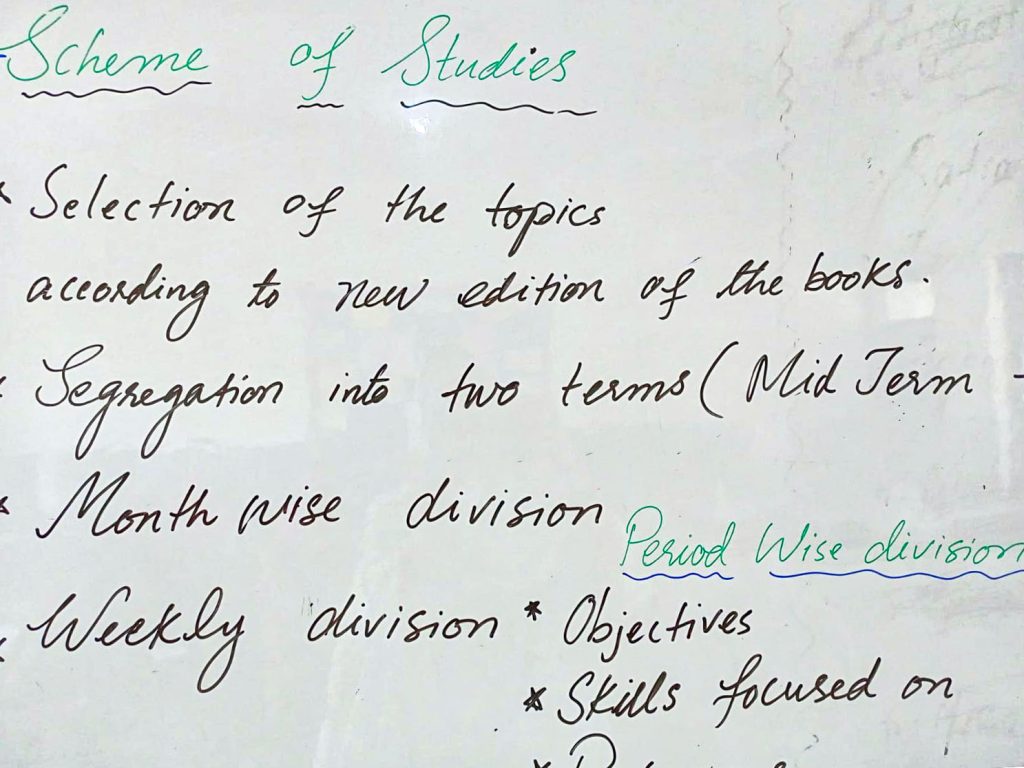 Scheme of Studies
* Selection of the topics
according to new edition of the books.
* Segregation into two terms ( Mid Term -
* Month wise division
Period Wise division
* Weekly division
* Objectives
* Skills focused on